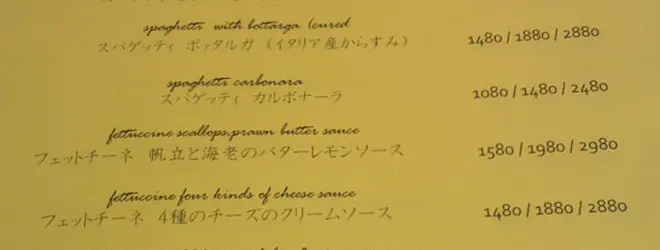 spaghetti with bottarga (cured
スパゲッティ ボッタルガ (イタリア産からすみ) 1480 / 1880 / 2880
spaghetti carbonara
スパゲッティ カルボナーラ 1080 / 1480 / 2480
fettuccine scallops,prawn butter sauce
フェットチーネ 帆立と海老のバターレモンソース 1580 / 1980 / 2980
fettuccine four kinds of cheese sauce
フェットチーネ 4種のチーズのクリームソース 1480 / 1880 / 2880